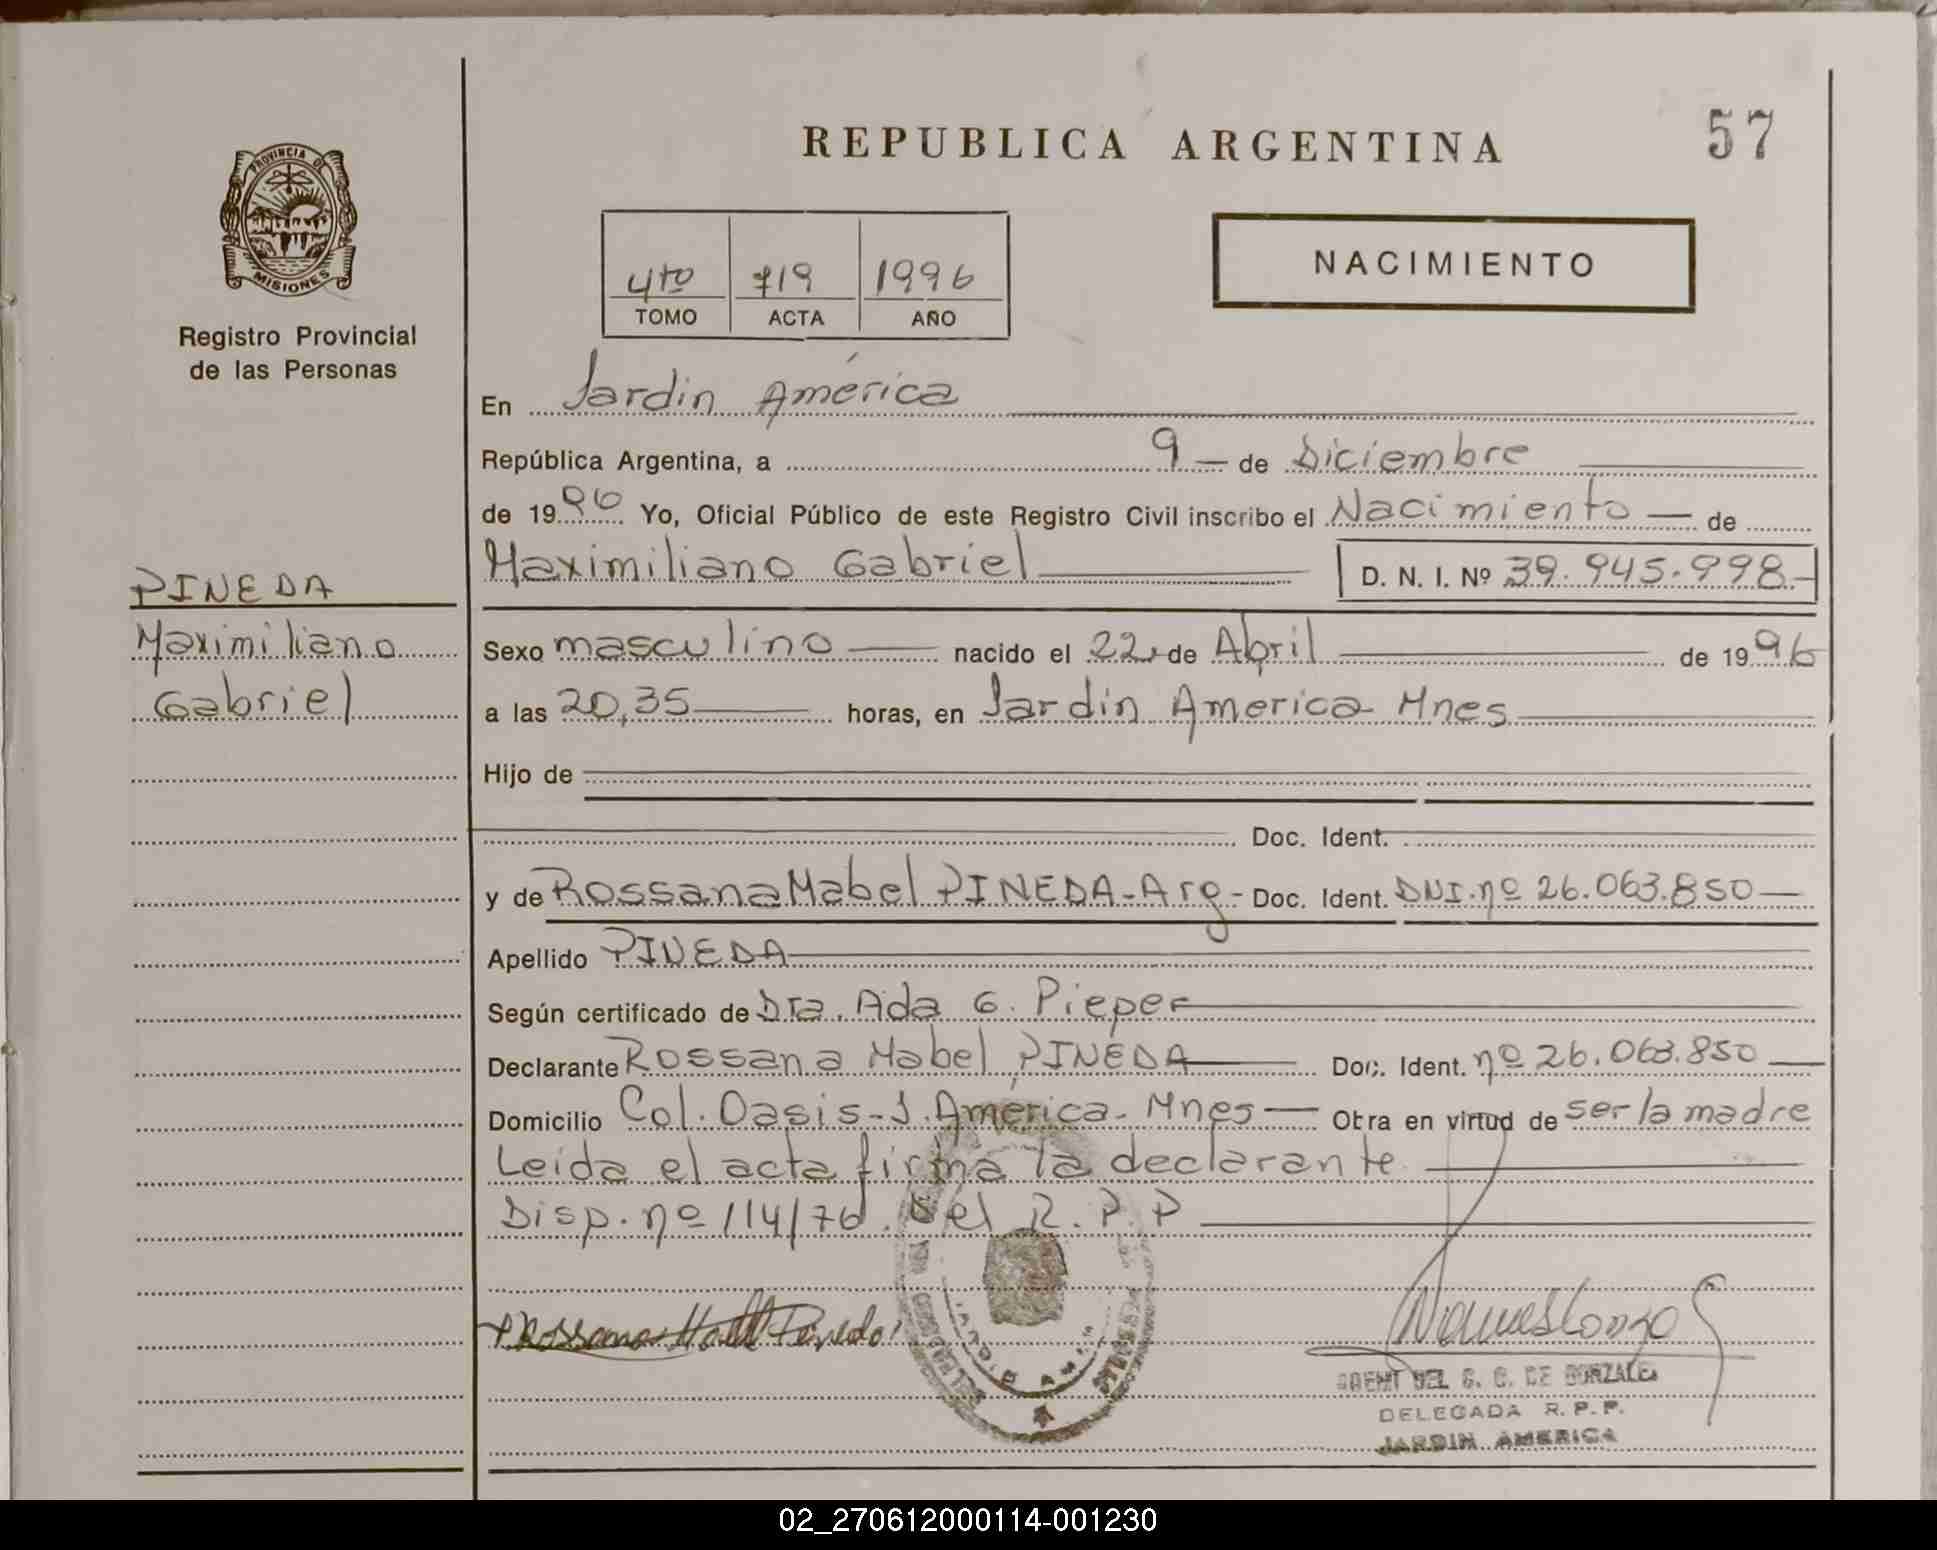 REPUBLICA ARGENTINA
57
PROVINCIA DE
MISIONES
Registro Provincial
de las Personas
4to 719 1996
TOMO ACTA AÑO
NACIMIENTO
En Jardin América
República Argentina, a 9 — de Diciembre
de 1996 Yo, Oficial Público de este Registro Civil inscribo el Nacimiento — de
Maximiliano Gabriel D. N. I. Nº 39.945.998-
PINEDA
Maximiliano
Gabriel
Sexo masculino nacido el 22 de Abril de 1996
a las 20,35 horas, en Jardin America Mnes
Hijo de
Doc. Ident.
y de Rossana Mabel PINEDA-Arg- Doc. Ident. DNI.nº 26.063.850
Apellido PINEDA
Según certificado de Dra. Ada G. Pieper
Declarante Rossana Mabel PINEDA Doc. Ident. nº 26.063.850
Domicilio Col. Oasis-J.América-Mnes Obra en virtud de ser la madre
Leida el acta firma la declarante
Disp. nº 114/76. Del R.P.P
DELEGADA R.P.P.
JARDIN AMERICA
02_270612000114-001230